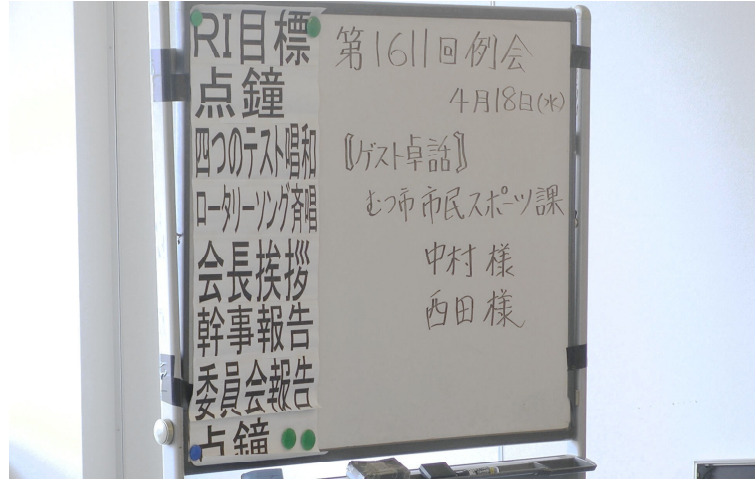 RI目標
点鐘
四つのテスト唱和
ロータリーソング斉唱
会長挨拶
幹事報告
委員会報告
点鐘
第1611回例会
4月18日(水)
〖ゲスト卓話〗
むつ市 市民スポーツ課
中村 様
西田 様